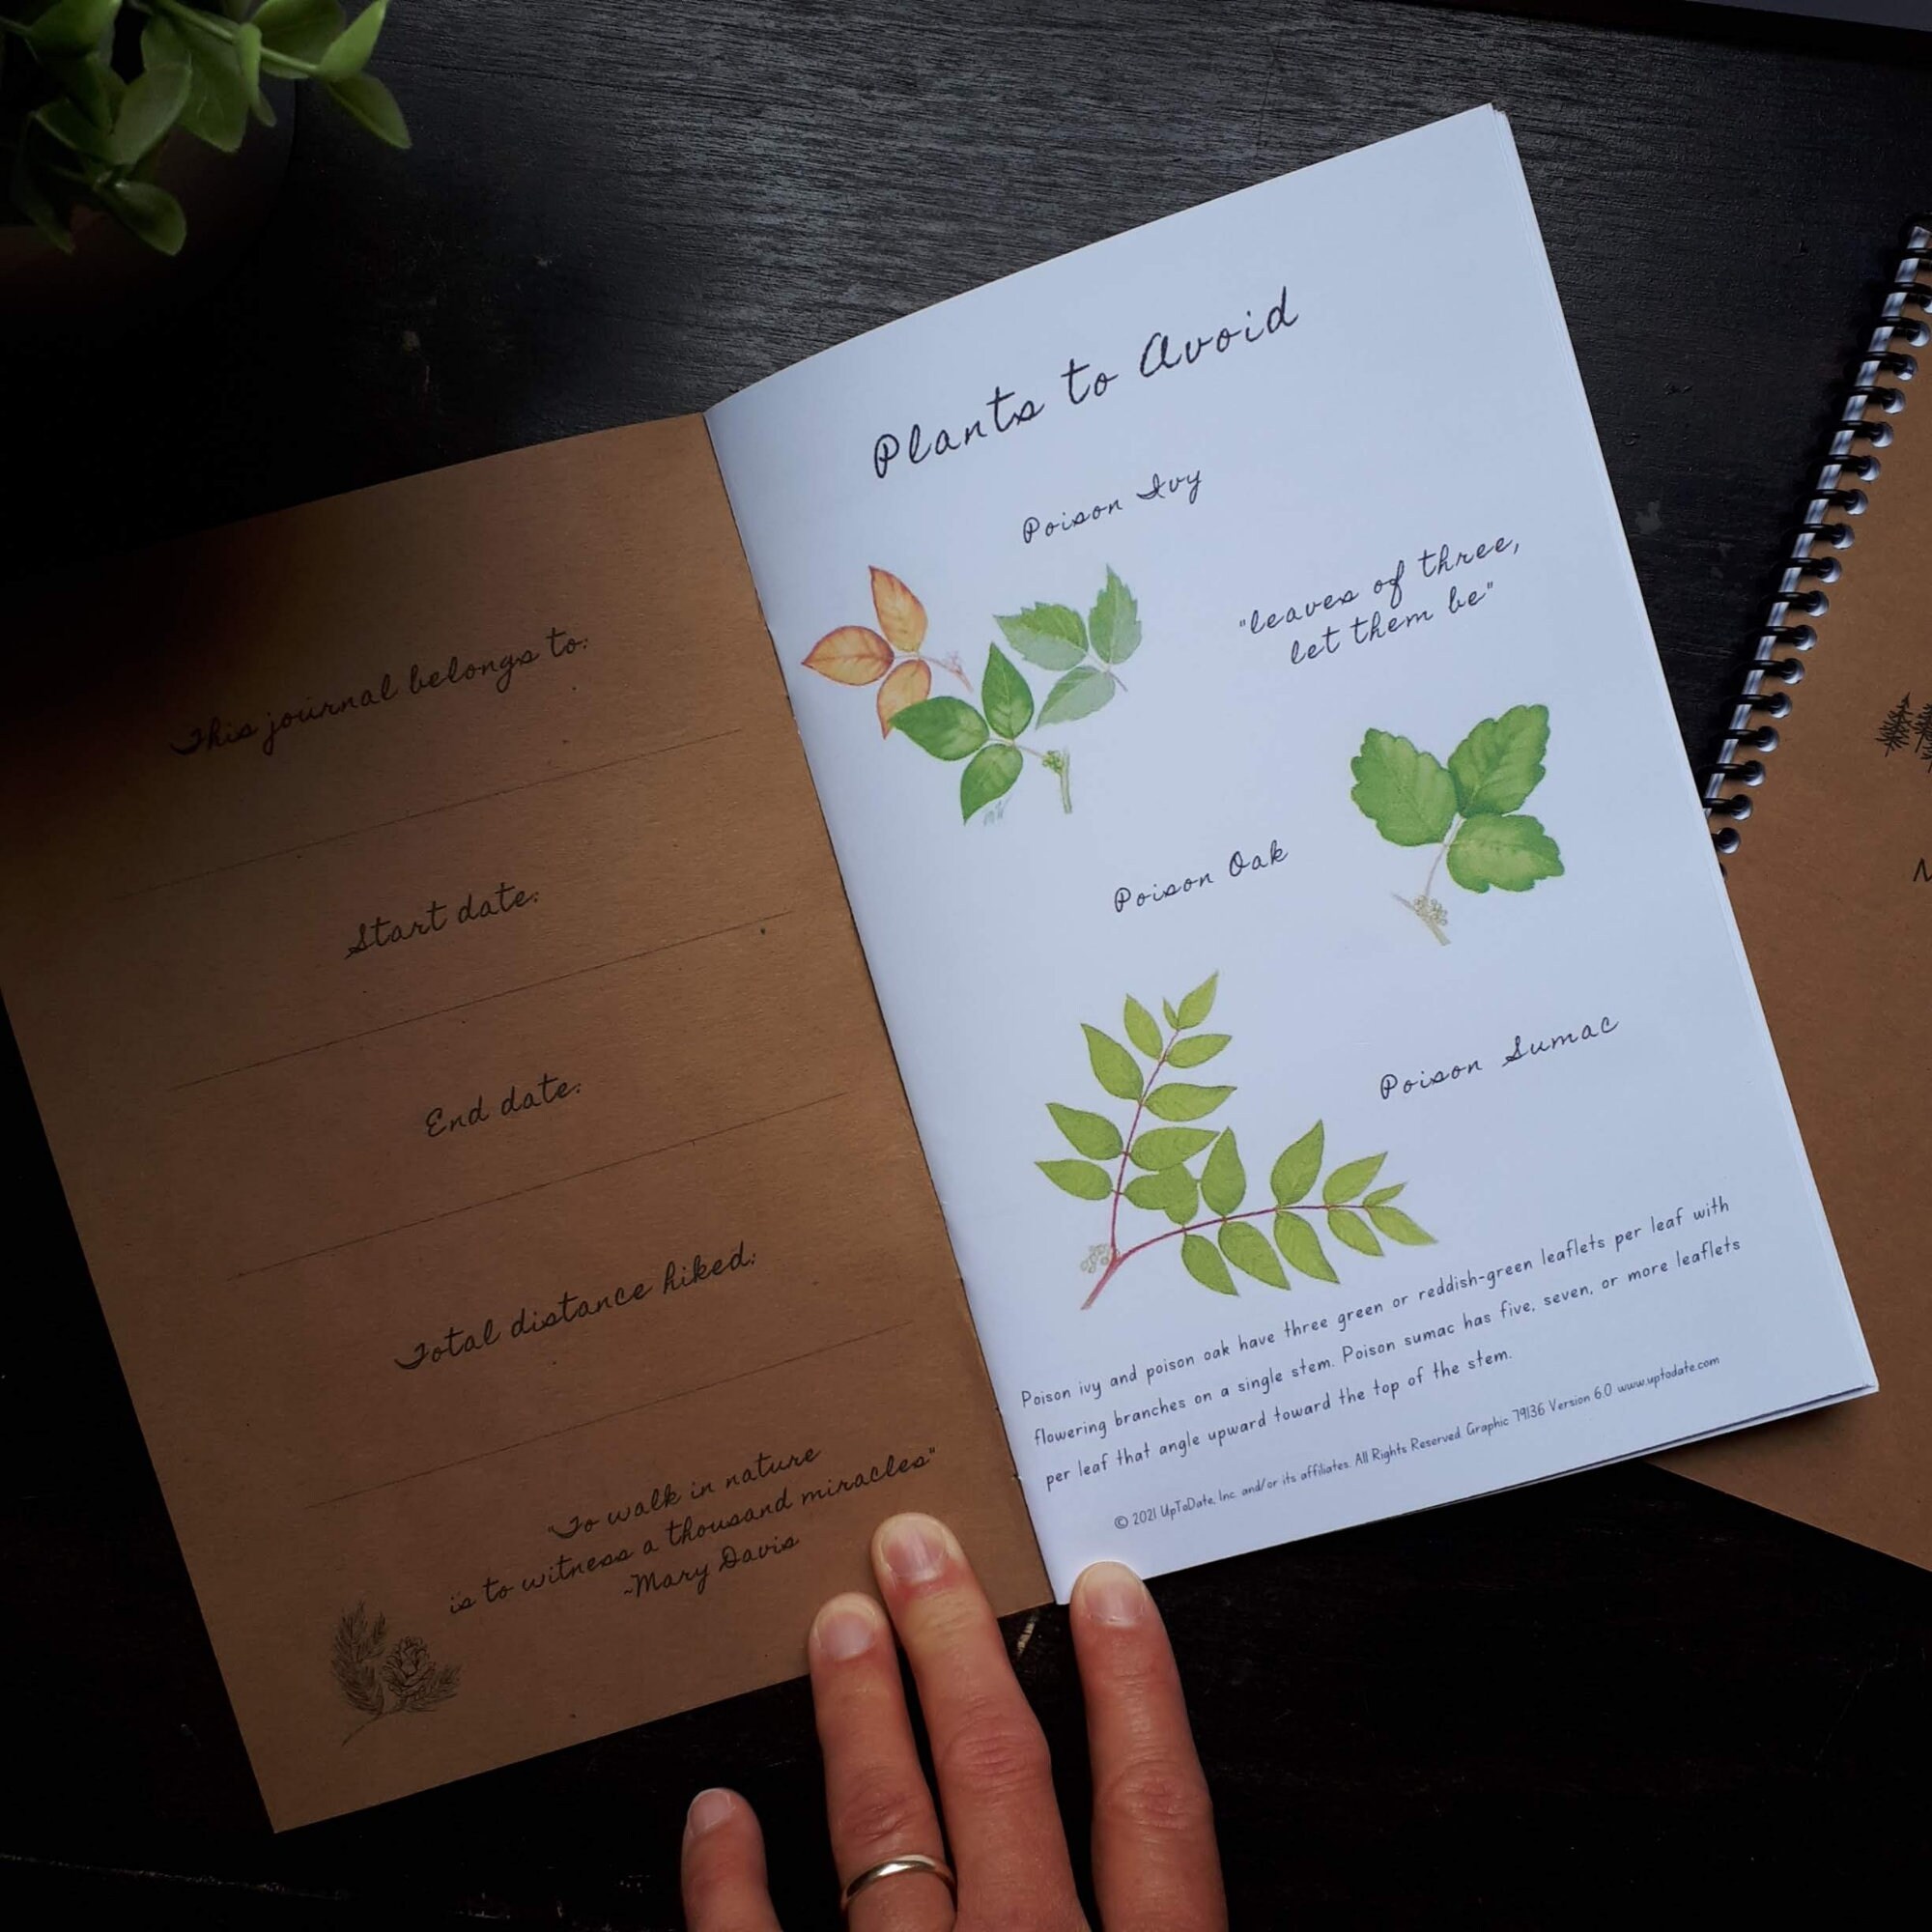 This journal belongs to:
Start date:
End date:
Total distance hiked:
"To walk in nature
is to witness a thousand miracles"
~Mary Davis
Plants to Avoid
Poison Ivy
"leaves of three,
let them be"
Poison Oak
Poison Sumac
Poison ivy and poison oak have three green or reddish-green leaflets per leaf with
flowering branches on a single stem. Poison sumac has five, seven, or more leaflets
per leaf that angle upward toward the top of the stem.
© 2021 UpToDate, Inc. and/or its affiliates. All Rights Reserved. Graphic 79136 Version 6.0 www.uptodate.com